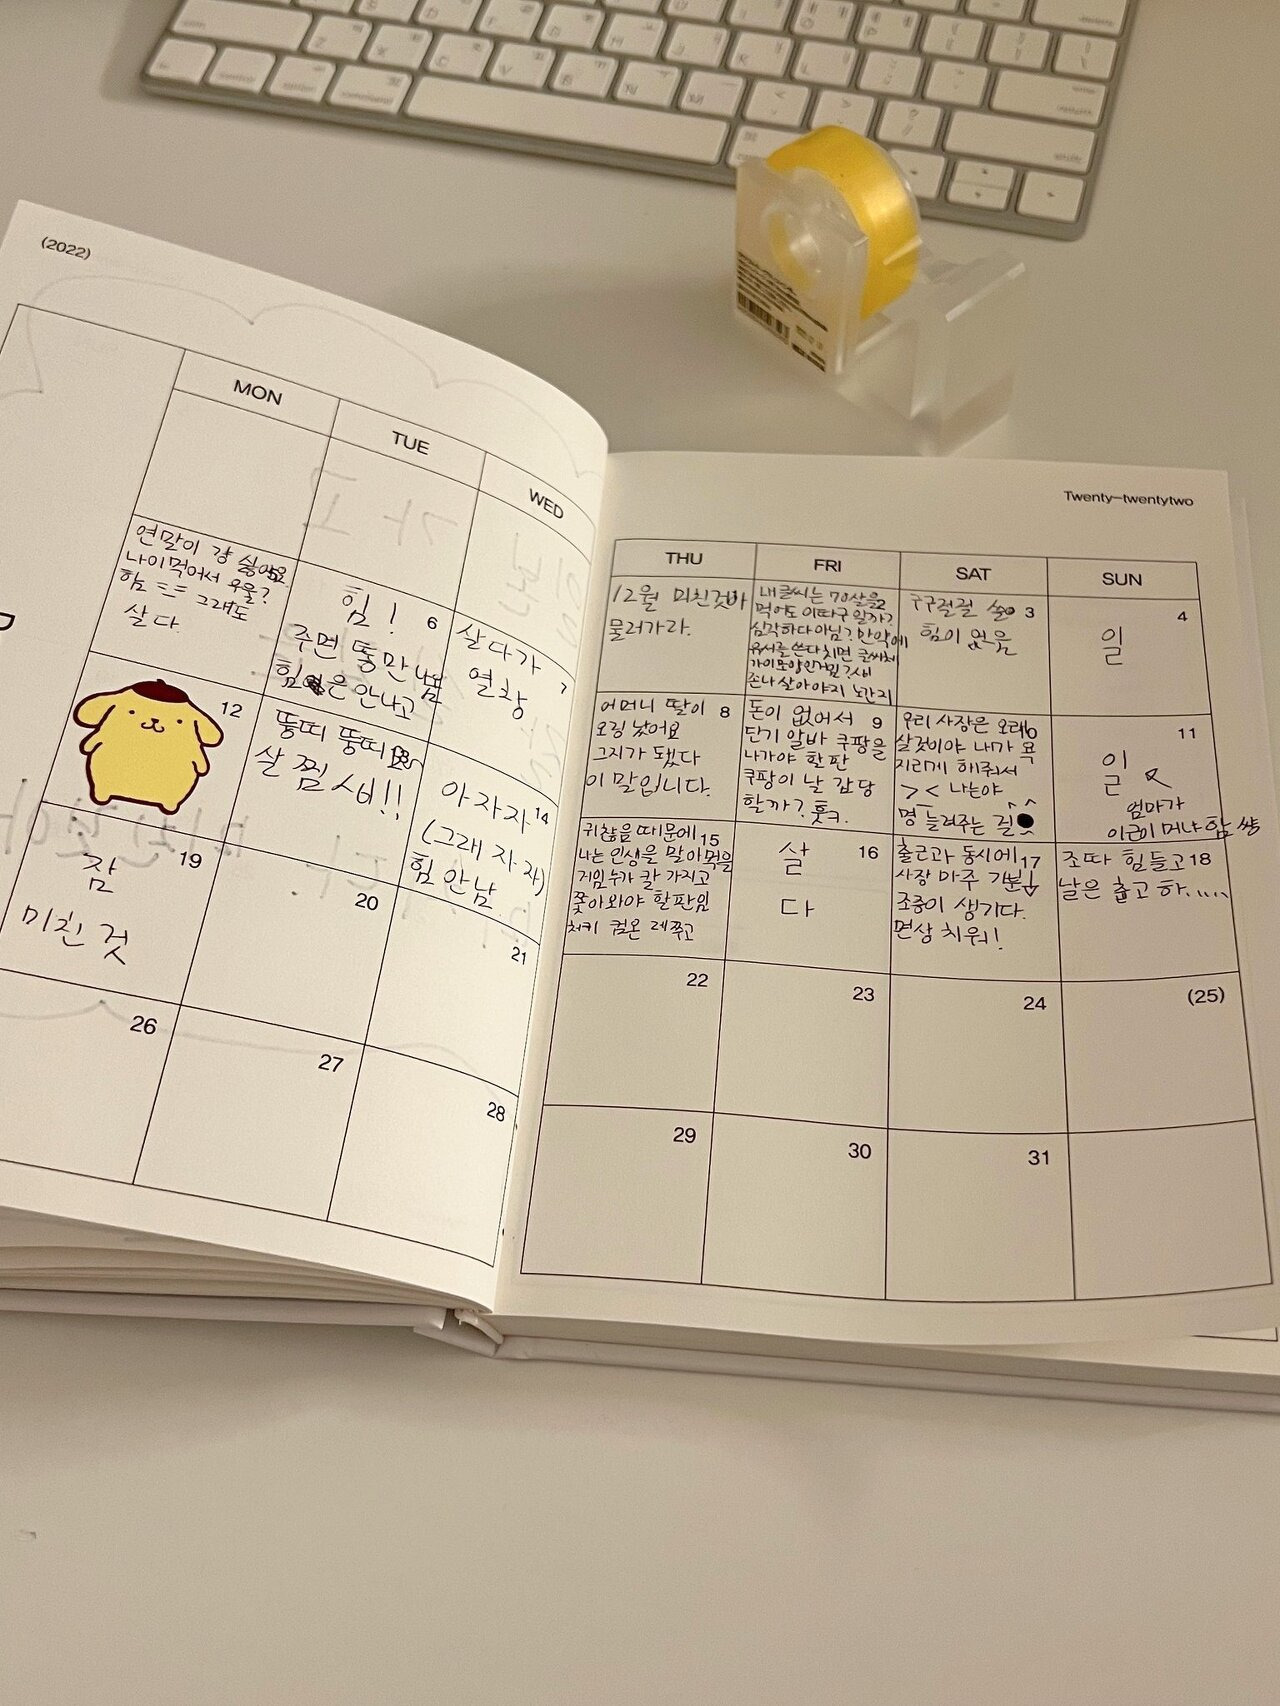 (2022)
Twenty-twentytwo
MON
TUE
WED
THU
FRI
SAT
SUN
12월 미친것아
물러가라.
내 글씨는 70살을
먹어도 이따구일까?
심각하다 아님? 만약에
유서를 쓴다 치면 글씨체
존나 살아야지 노간지
3
구구절절
힘이 없음
4
일
연말이 걍 싫어요
나이먹어서 우울?
힘 드드 그래도
살다.
6
힘!
주면 똥만
은 안나고
7
살다가
열창
8
어머니 딸이
오링 났어요
그지가 됐다
이 말입니다.
9
돈이 없어서
단기 알바 쿠팡을
나가야 할 판
쿠팡이 날 감당
할까? 훗ㅋ.
우리 사장은 오래
살것이야 내가 욕
지리게 해줘서
>< 나는야
명 늘려주는 걸
11
일
엄마가
12
뚱띠 뚱띠
살 찜 시비!!
14
아자자
(그래 자자)
힘 안남
15
귀찮음 때문에
나는 인생을 말아먹을
거임 누가 칼 가지고
쫓아와야 할판임
처키 컴온 레쭈고
16
살
다
17
출근과 동시에
사장 마주 기분↓
조증이 생기다.
면상 치워!
18
조따 힘들고
날은 춥고 하.....
19
잠
미친 것
20
21
22
23
24
(25)
26
27
28
29
30
31